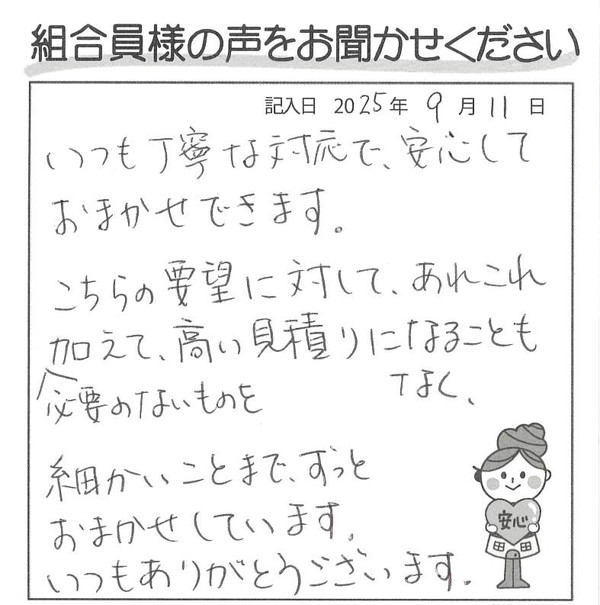 組合員様の声をお聞かせください
記入日 2025年 9月 11日
いつも丁寧な対応で、安心して
おまかせできます。
こちらの要望に対して、あれこれ
加えて、高い見積りになることも
必要のないものを
なく、
細かいことまで、ずっと
おまかせしています。
いつもありがとうございます。
安心